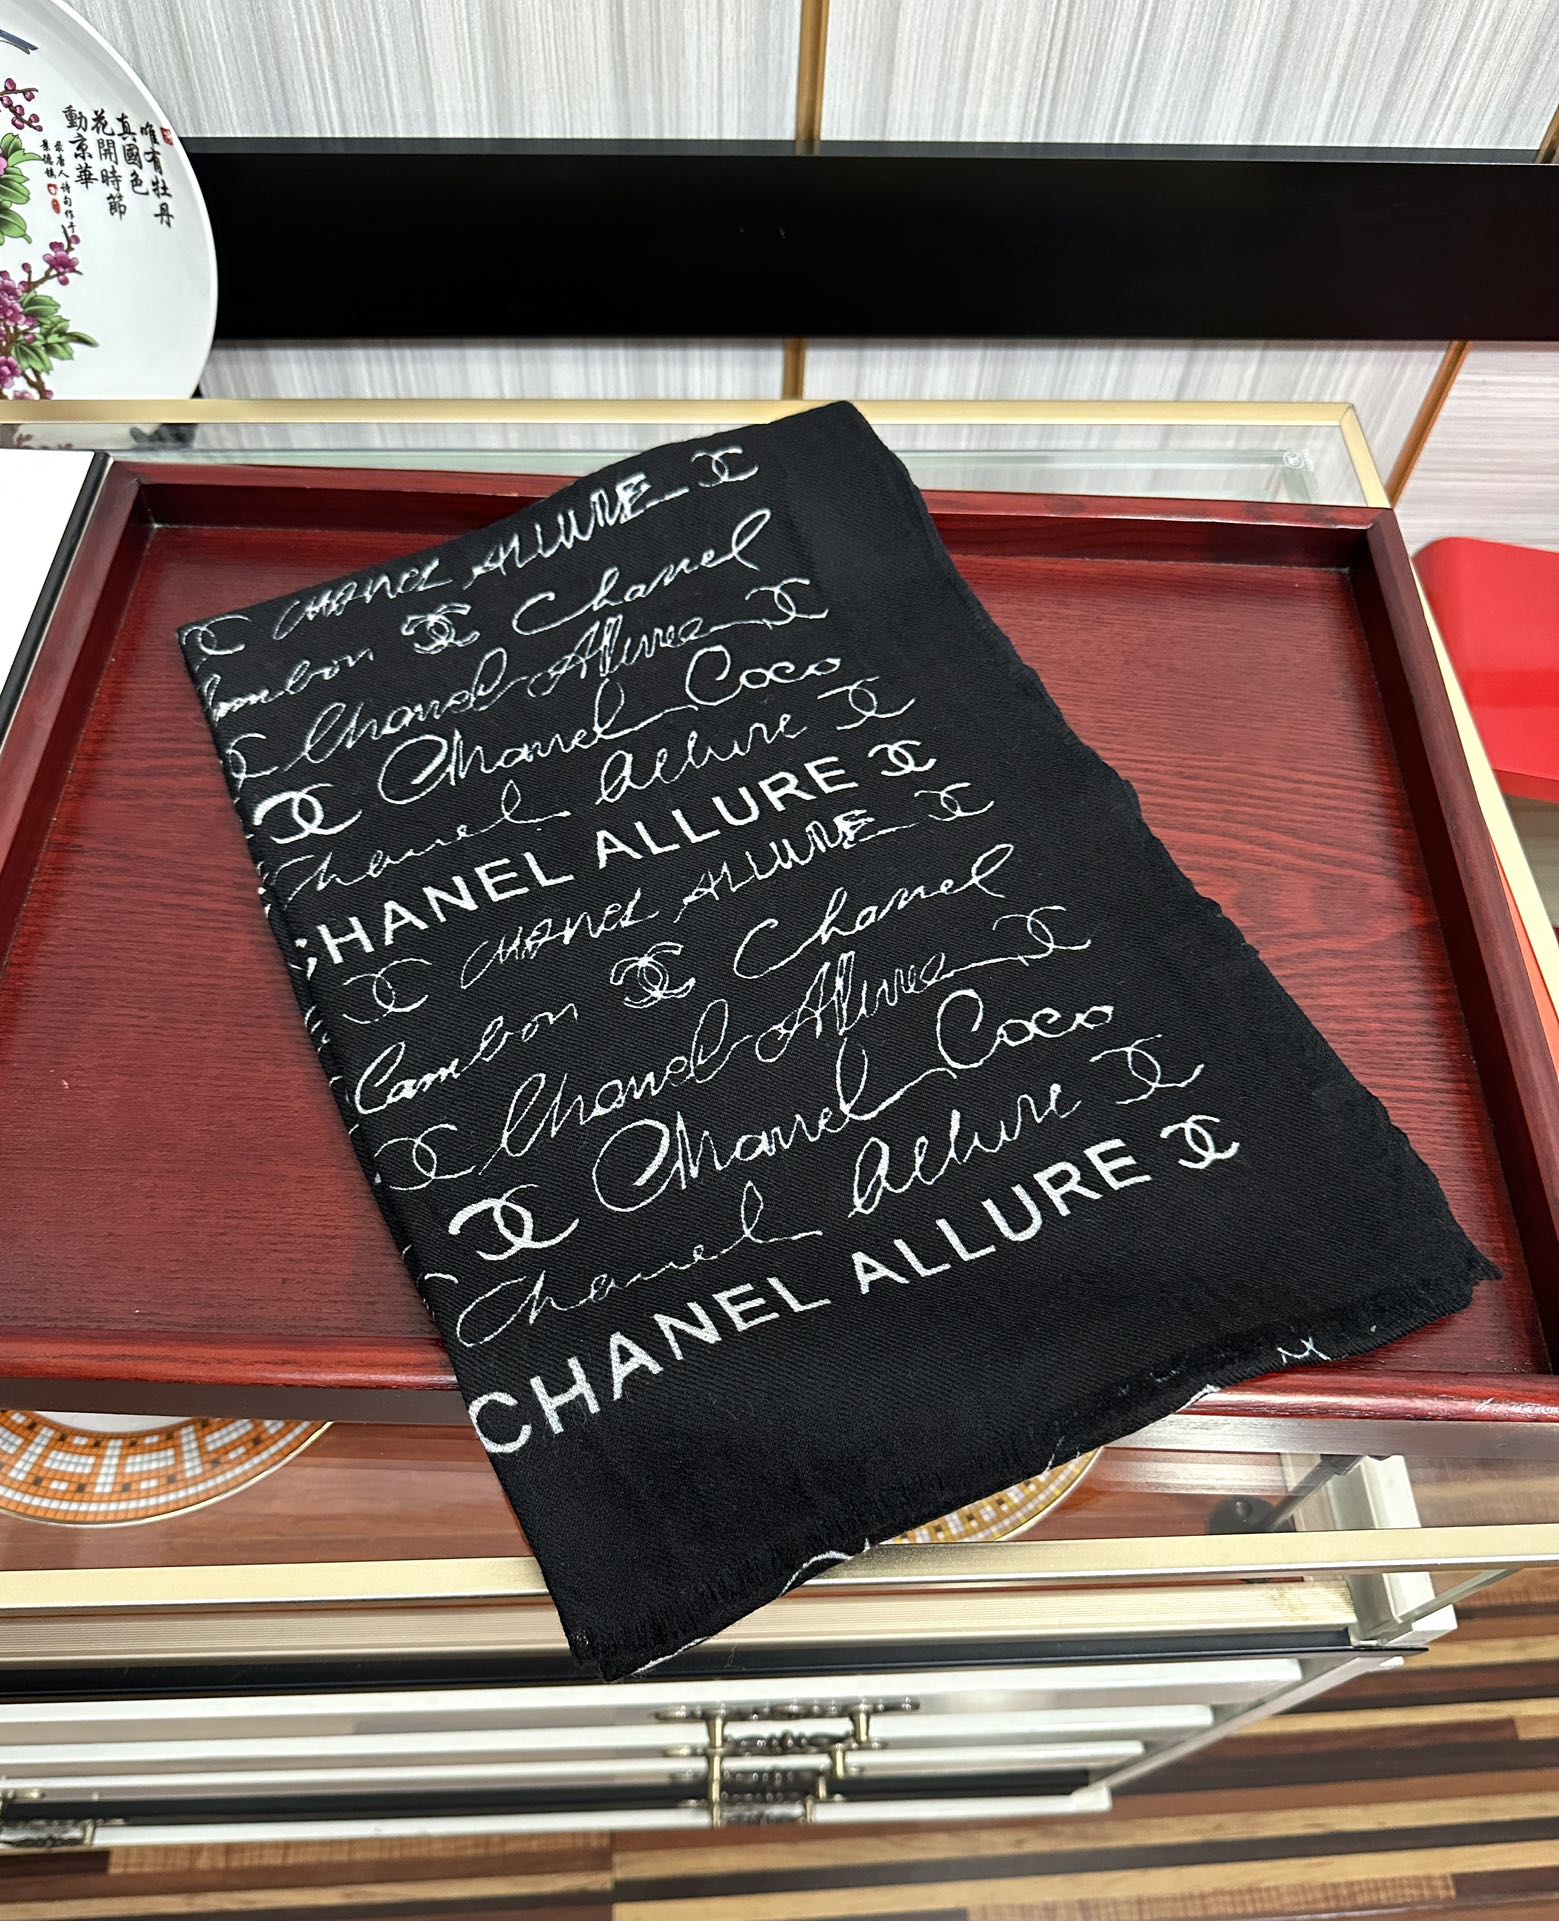 唯有牡丹
真國色
花開時節
動京華
CHANEL ALLURE
Cambon Chanel
Chanel Allure
Chanel Coco
Chanel Allure
CHANEL ALLURE
CHANEL ALLURE
Cambon Chanel
Chanel Allure
Chanel Coco
Chanel Allure
CHANEL ALLURE